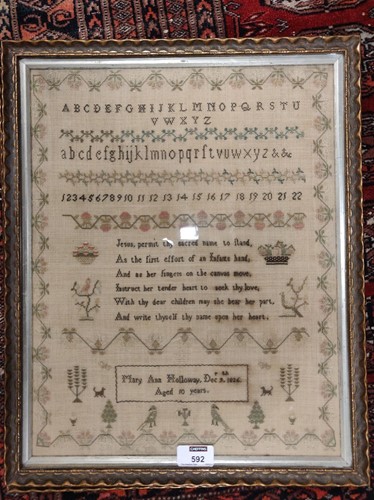 ABCDEFGHIJKLMNOPQRSTU
VWXYZ
abcdefghijklmnopqrſtvuwxyz&&c
12345678910 11 12 13 14 15 16 17 18 19 20 21 22
Jesus, permit thy sacred name to ſtand,
As the first effort of an Infants hand,
And as her fingers on the canvas move,
Instruct her tender heart to seek thy love,
With thy dear children may she bear her part,
And write thyself thy name upon her heart.
Mary Ann Holloway, Dec
Aged 10 years.
592